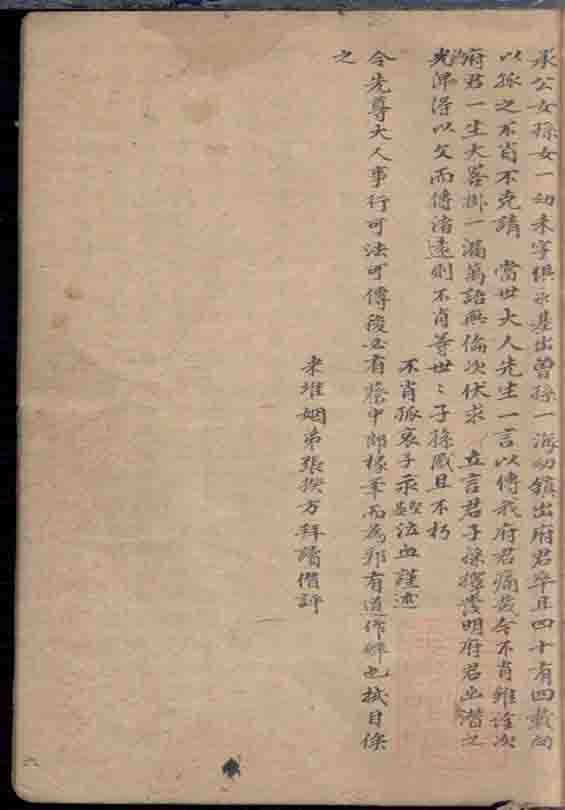 承公女孫女一幼未字俱永基出曾孫一海幼鎮出府君卒且四十有四載向
以孤之不肖不克請 當世大人先生一言以傳我府君痛哉今不肖雖詮次
府君一生大畧掛一漏萬語無倫次伏求 立言君子採擇發明府君幽潛之
光俾得以文而傳諸遠則不肖等世〻子孫感且不朽
不肖孤哀子承 泣血謹述
令先尊大人事行可法可傳後必有蔡中郎椽筆而為郭有道作碑也拭目俟
之
耒堆姻弟張揆方拜讀僭評